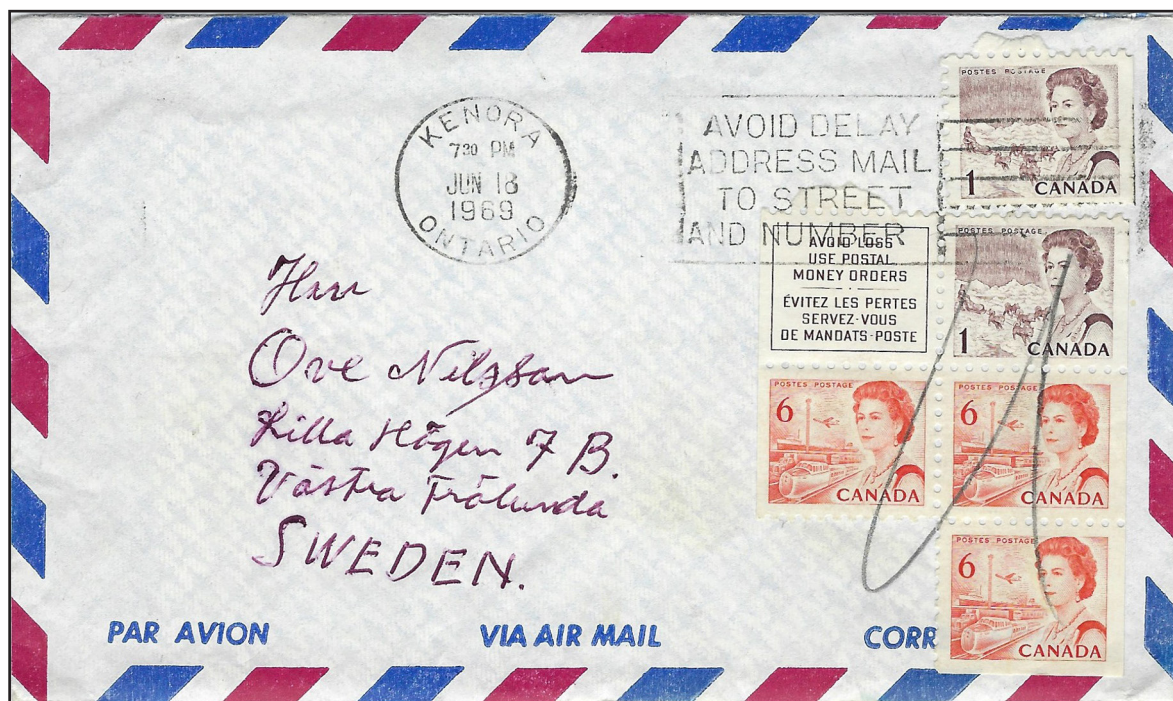 KENORA
7 30 PM
JUN 18
1969
ONTARIO
AVOID DELAY
ADDRESS MAIL
TO STREET
AND NUMBER
POSTES POSTAGE
1 CANADA
AVOID LOSS
USE POSTAL
MONEY ORDERS
ÉVITEZ LES PERTES
SERVEZ-VOUS
DE MANDATS-POSTE
POSTES POSTAGE
1 CANADA
POSTES POSTAGE
6
CANADA
POSTES POSTAGE
6
CANADA
POSTES POSTAGE
6
CANADA
Herr
Ove Nilsson
Lilla Högen 7 B.
Västra Frölunda
SWEDEN.
PAR AVION
VIA AIR MAIL
CORR